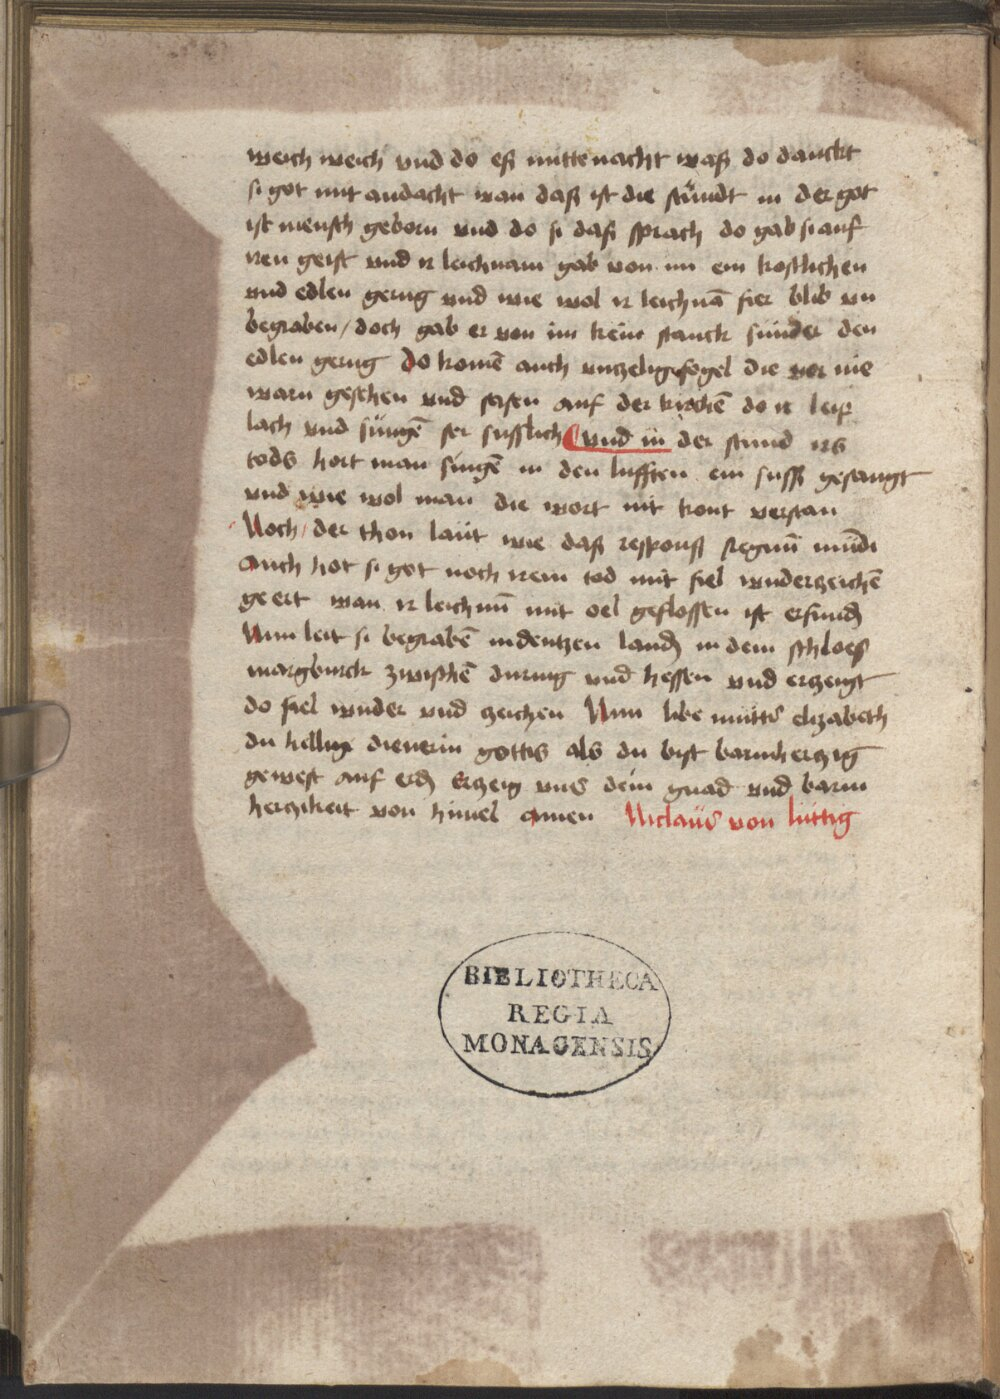 weich weich vnd do eß mittenacht waß do danckt
si got mit andacht wan daß ist die stundt in der got
ist mensch geborn vnd do si daß sprach do gab si auf
iren geist vnd ir leichnam gab von im ein kostlichen
vnd edlen gerug vnd wie wol ir leichnā fier blib vn
begraben / doch gab er von im kein stanck sunder den
edlen gerug do komē auch vnzelig fogel die vor nie
warn gesehen vnd sasen auf der kirchē do ir leip
lach vnd sungē ser susslich vnd in der stund irs
tods hort man singē in den lufften ein suss gesangt
vnd wie wol man die wort nit kont verstan
Noch / der thon laut wie daß respons regnū mūdi
Auch hot si got noch irem tod mit fiel wnderzeichē
geert wan ir leichnū mit oel geflossen ist erfundē
Nun leit si begrabē in deutzen landē in dem schloes
margburck zwischē during vnd hessen vnd erzeugt
do fiel wnder vnd zeichen Nun libe mutter elizabeth
du hellige dienerin gottis als du bist barmherzig
gewest auf erdē Erzeig vns dein gnad vnd barm
herzikeit von himel amen Niclaus von lüttig
BIBLIOTHECA
REGIA
MONACENSIS